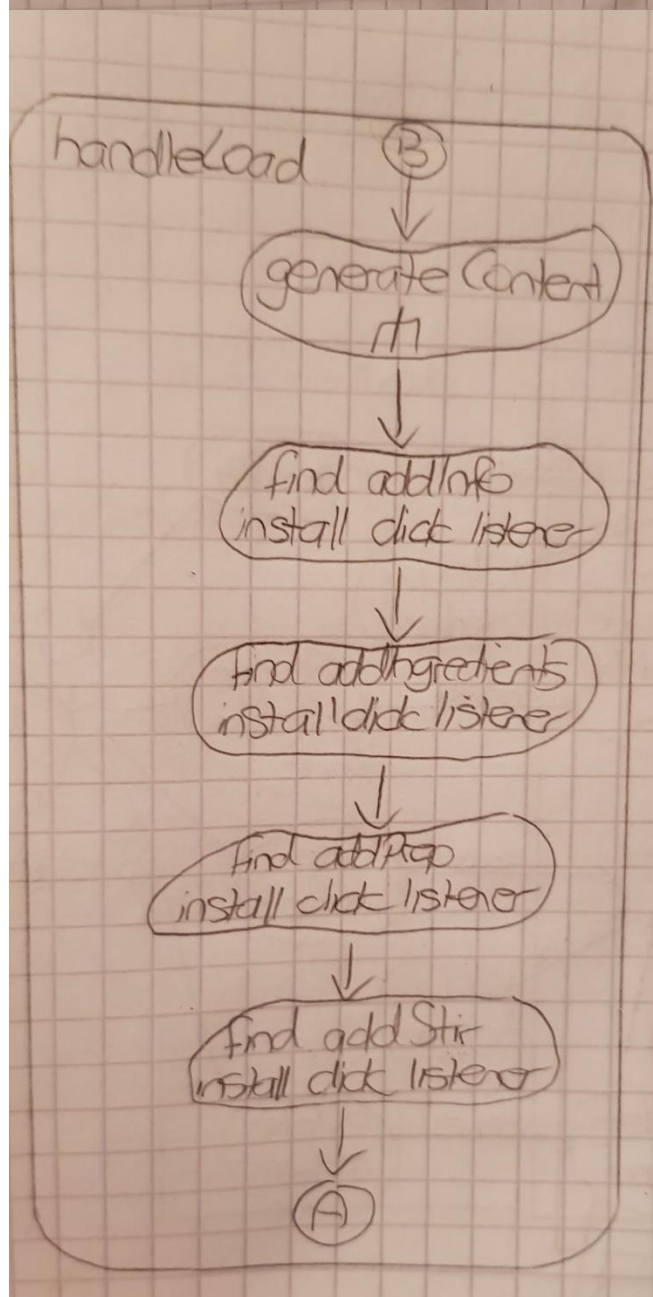 handleLoad
B
generateContent
find addInfo
install click listener
find addIngredients
install click listener
find addPrep
install click listener
find addStir
install click listener
A